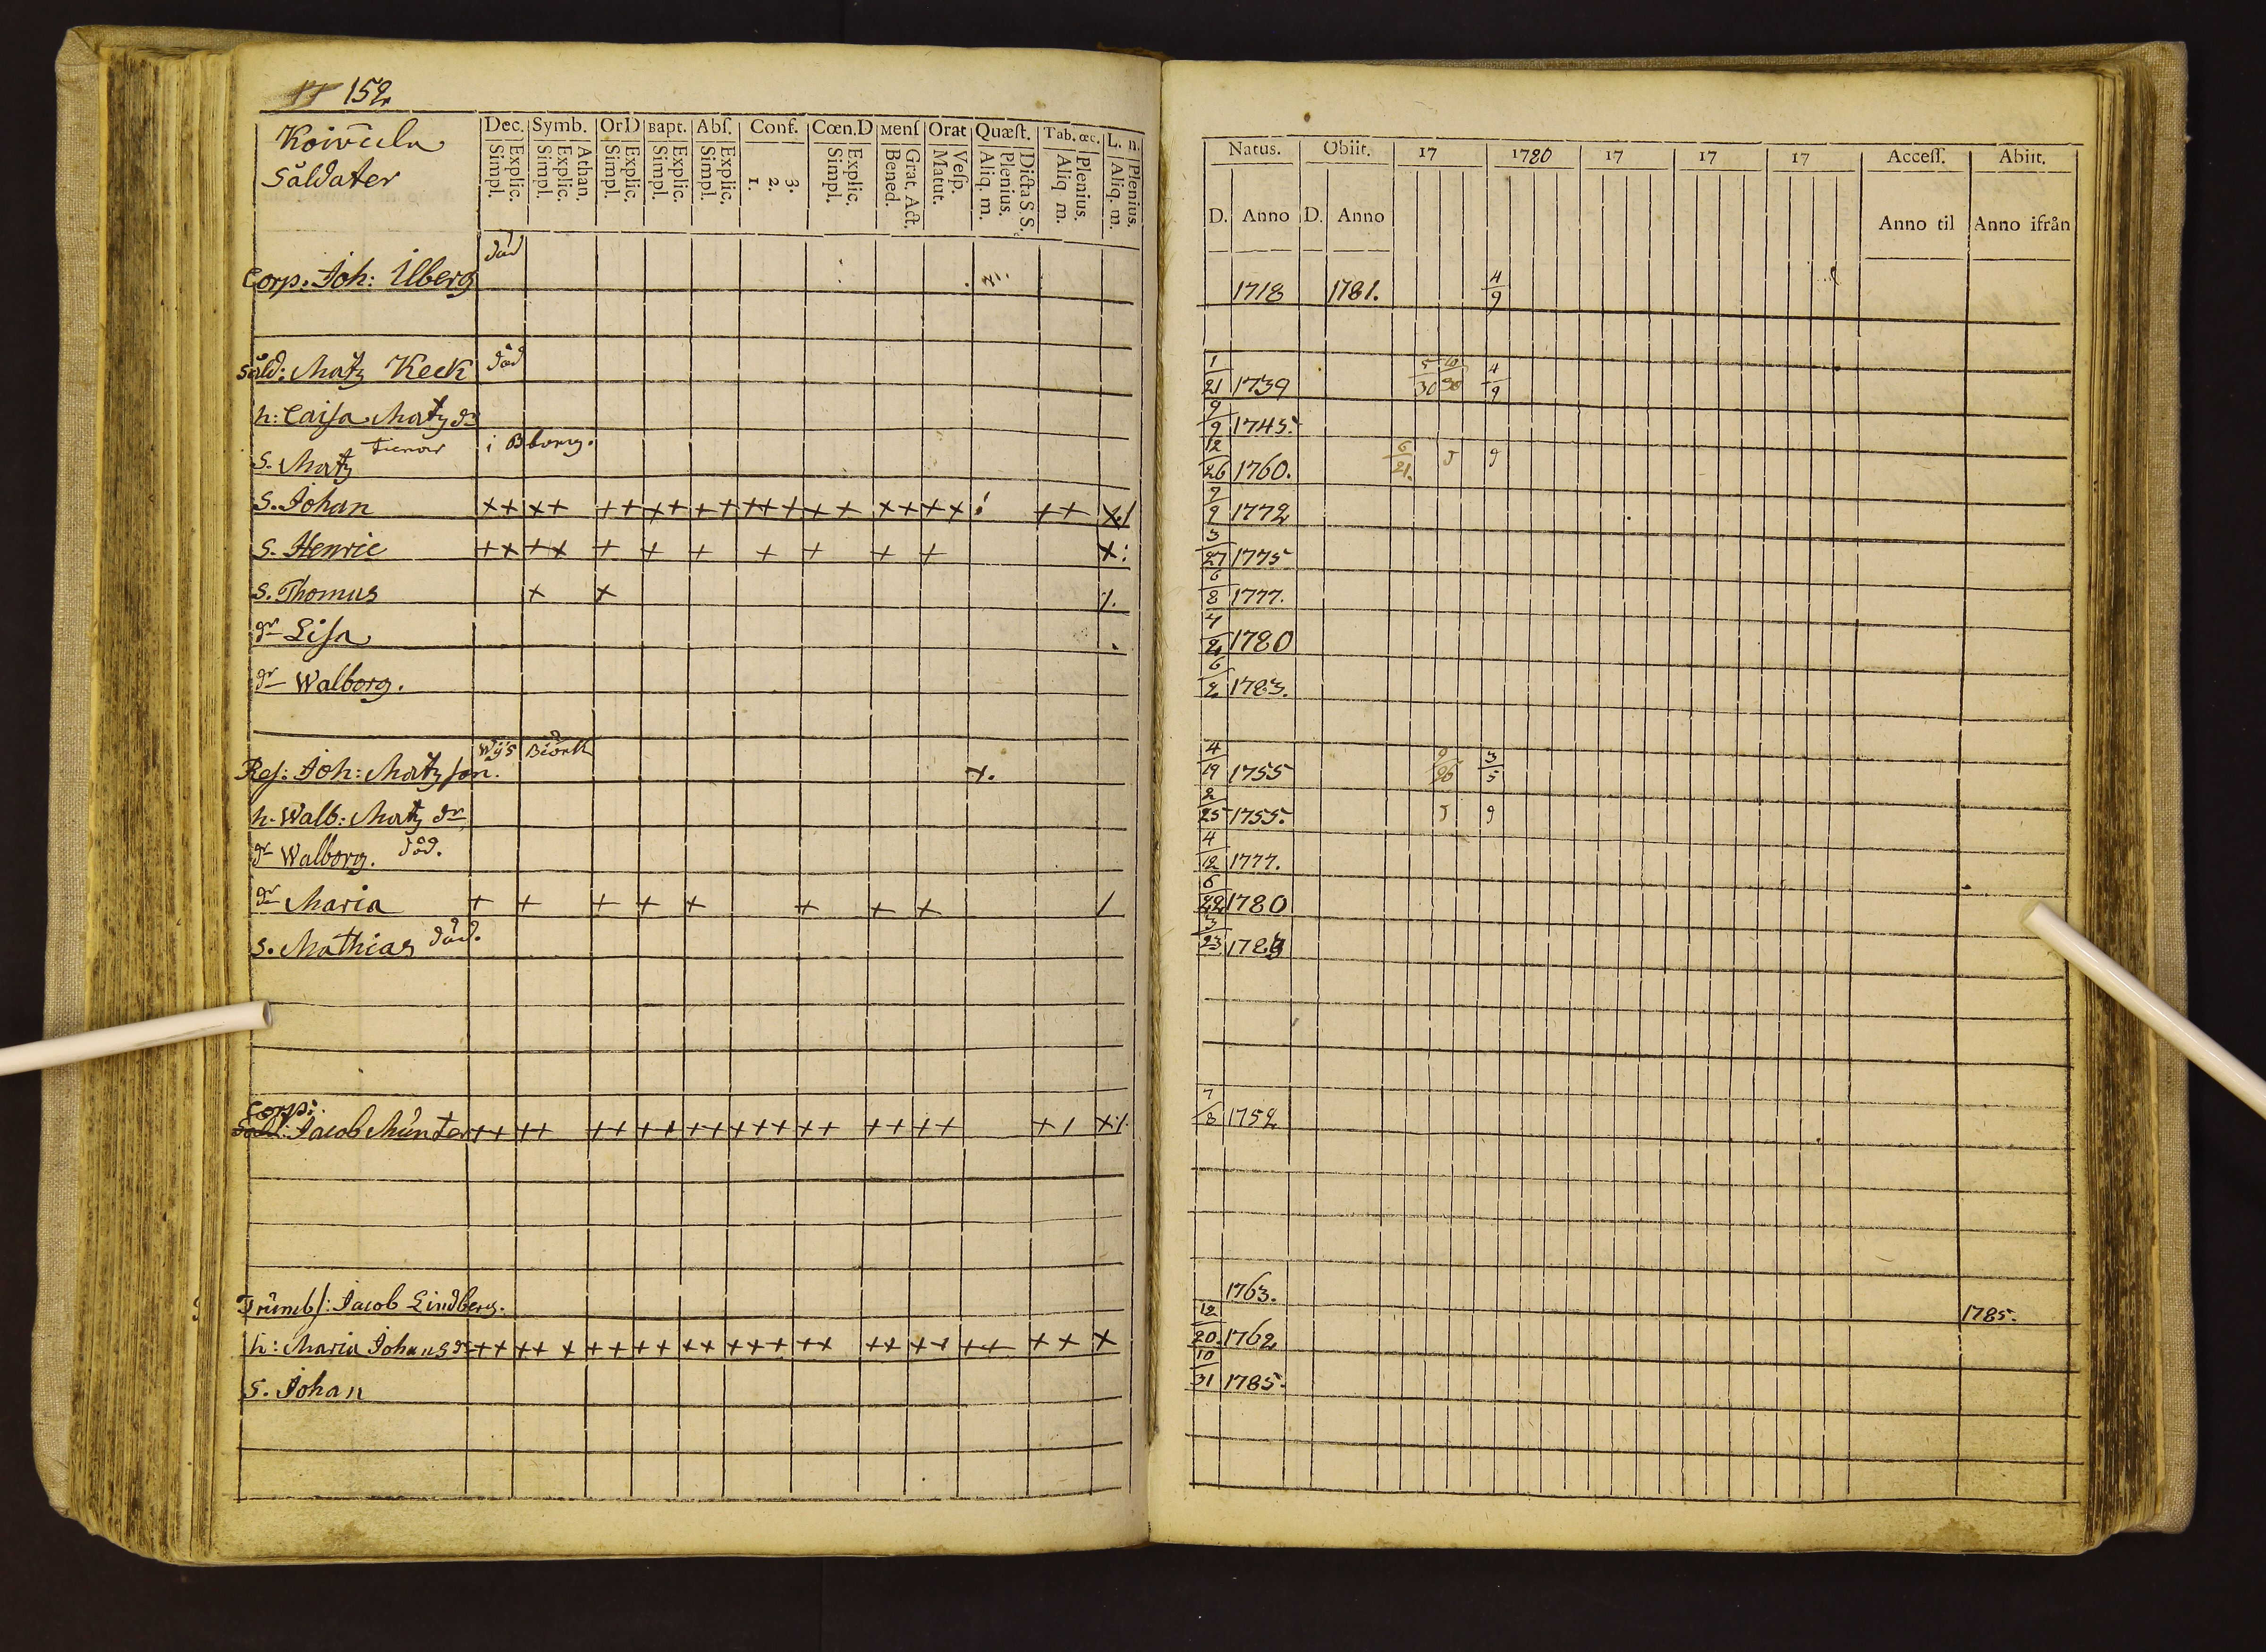 152
Koivula
Såldater
Dec. Symb. OrD Bapt. Abſ. Conf. Cœn.D Menſ Orat Quæſt. Tab. œc. L. n.
Explic. Simpl. Athan. Explic. Simpl. Explic. Simpl. Explic. Simpl. Explic. Simpl. 3. 2. 1. Explic. Simpl. Grat. Act. Bened. Veſp. Matut. Dicta S.S. Plenius. Aliq. m. Plenius. Aliq m. Plenius. Aliq. m.
Natus. Obiit. 17 1780 17 17 17 Acceſſ. Abiit.
D. Anno D. Anno Anno til Anno ifrån
död
Corp. Joh: Ilberg 1718 1781. 4/9
död
Såld: Matz Keck 1/21 1739 5/30 10/30 4/9
h: Caiſa Matz dr 9/9 1745.
tienar i Bborg.
S. Matz 12/26 1760. 6/21.
S. Johan ++ ++ ++ ++ ++ +++ ++ ++ ++ ++ 7/9 1772
S. Henric ++ ++ + + + + + + + + 3/27 1775
S. Thomas + + 6/8 1777.
dr Liſa 4/2 1780
dr Walborg. 6/2 1783.
Wijs Biörk
Reſ: Joh: Matzſon. +. 4/19 1755 9/26 3/5
h. Walb: Matz dr 2/25 1755.
dr Walborg. död. 4/12 1777.
dr Maria + + + + + + + + / 6/22 1780
S. Mathias död. 3/23 1783
Corp:
Sold: Jacob Munter ++ ++ ++ ++ ++ +++ ++ ++ ++ +/ 7/8 1752
Trumbſ: Jacob Lindberg. 1763. 1785.
h: Maria Johans dr ++ ++ + ++ ++ ++ +++ ++ ++ ++ ++ ++ + 12/20. 1762
S. Johan 10/31 1785.